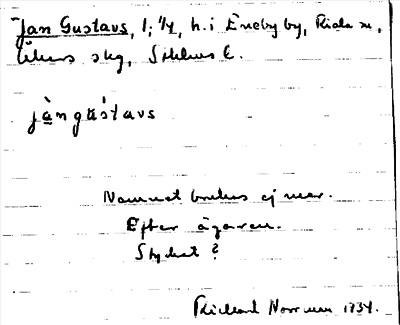 Jan Gustavs, l; 1/4, h. i Eneby by, Riala sn,
Åkers skg, Sthlms l.
jàngústavs
Namnet brukas ej mer.
Efter ägaren.
Styckat?
Rickard Norrman 1934.